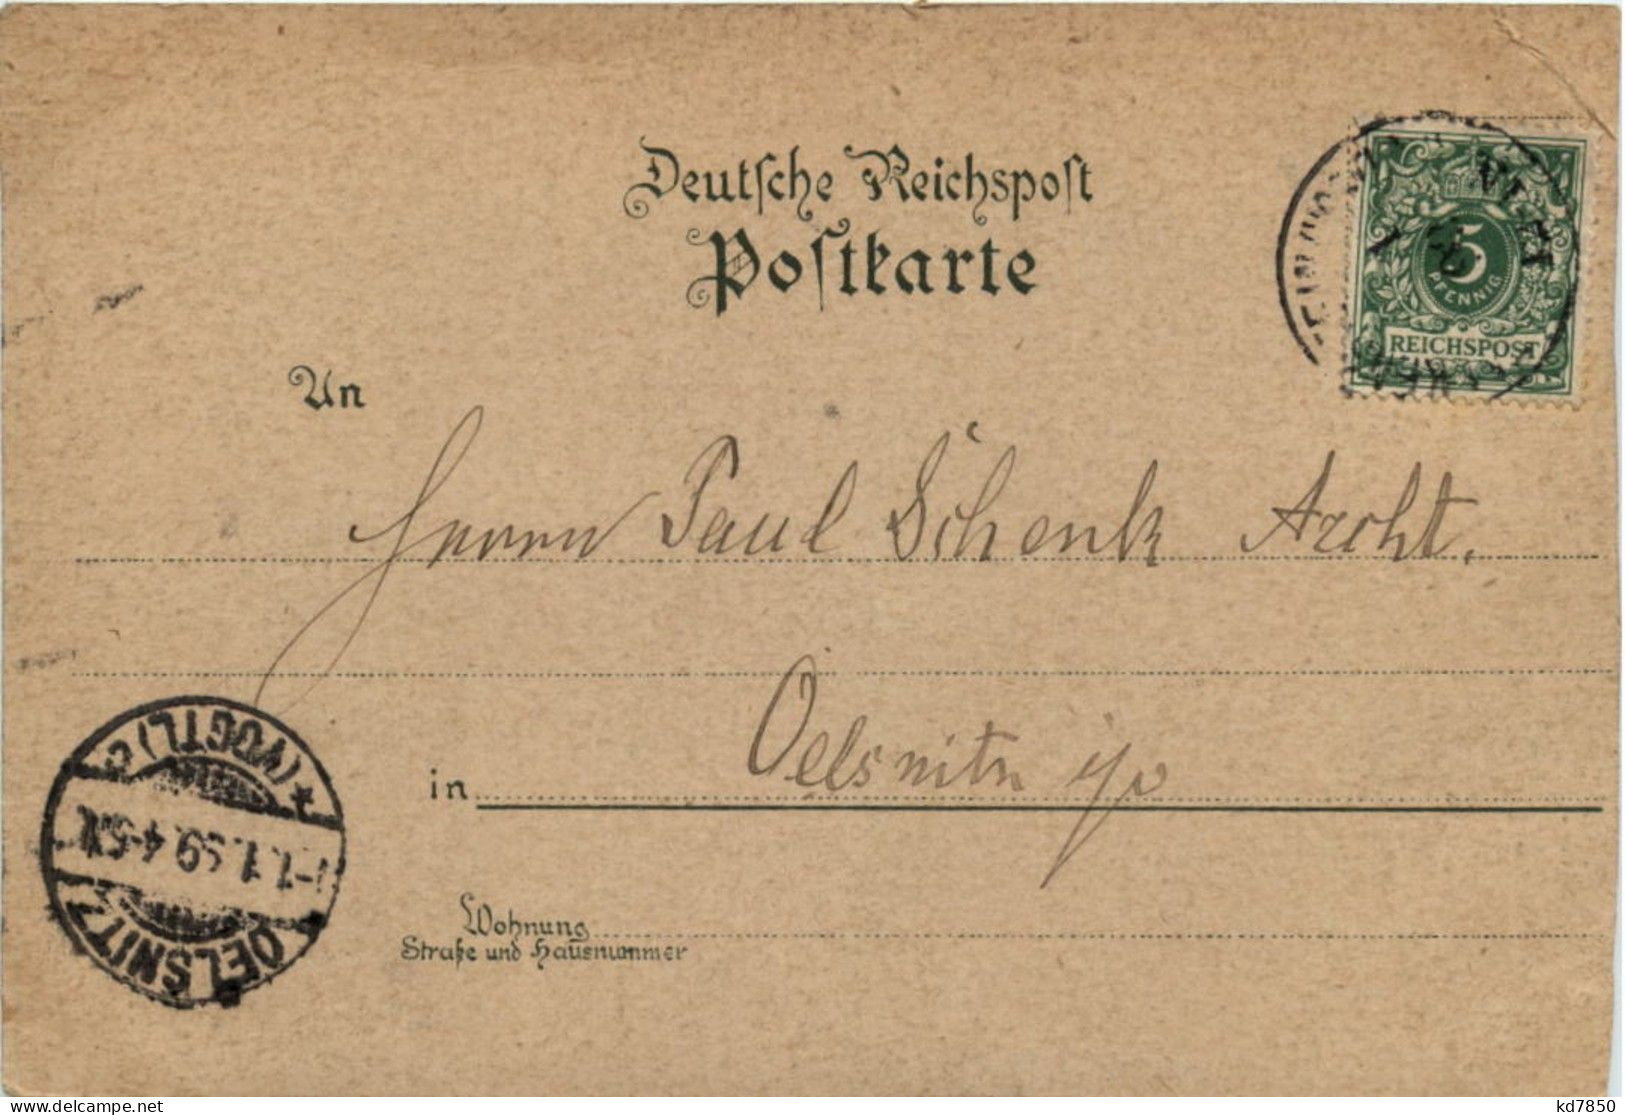 Deutsche Reichspost
Postkarte
5
PFENNIG
REICHSPOST
An
Herrn Paul Schenk Archt.
in Oelsnitz i/v
Wohnung
Straße und Hausnummer
OELSNITZ
1.1.99.4-5N.
*(VOGTL) c
kd7850